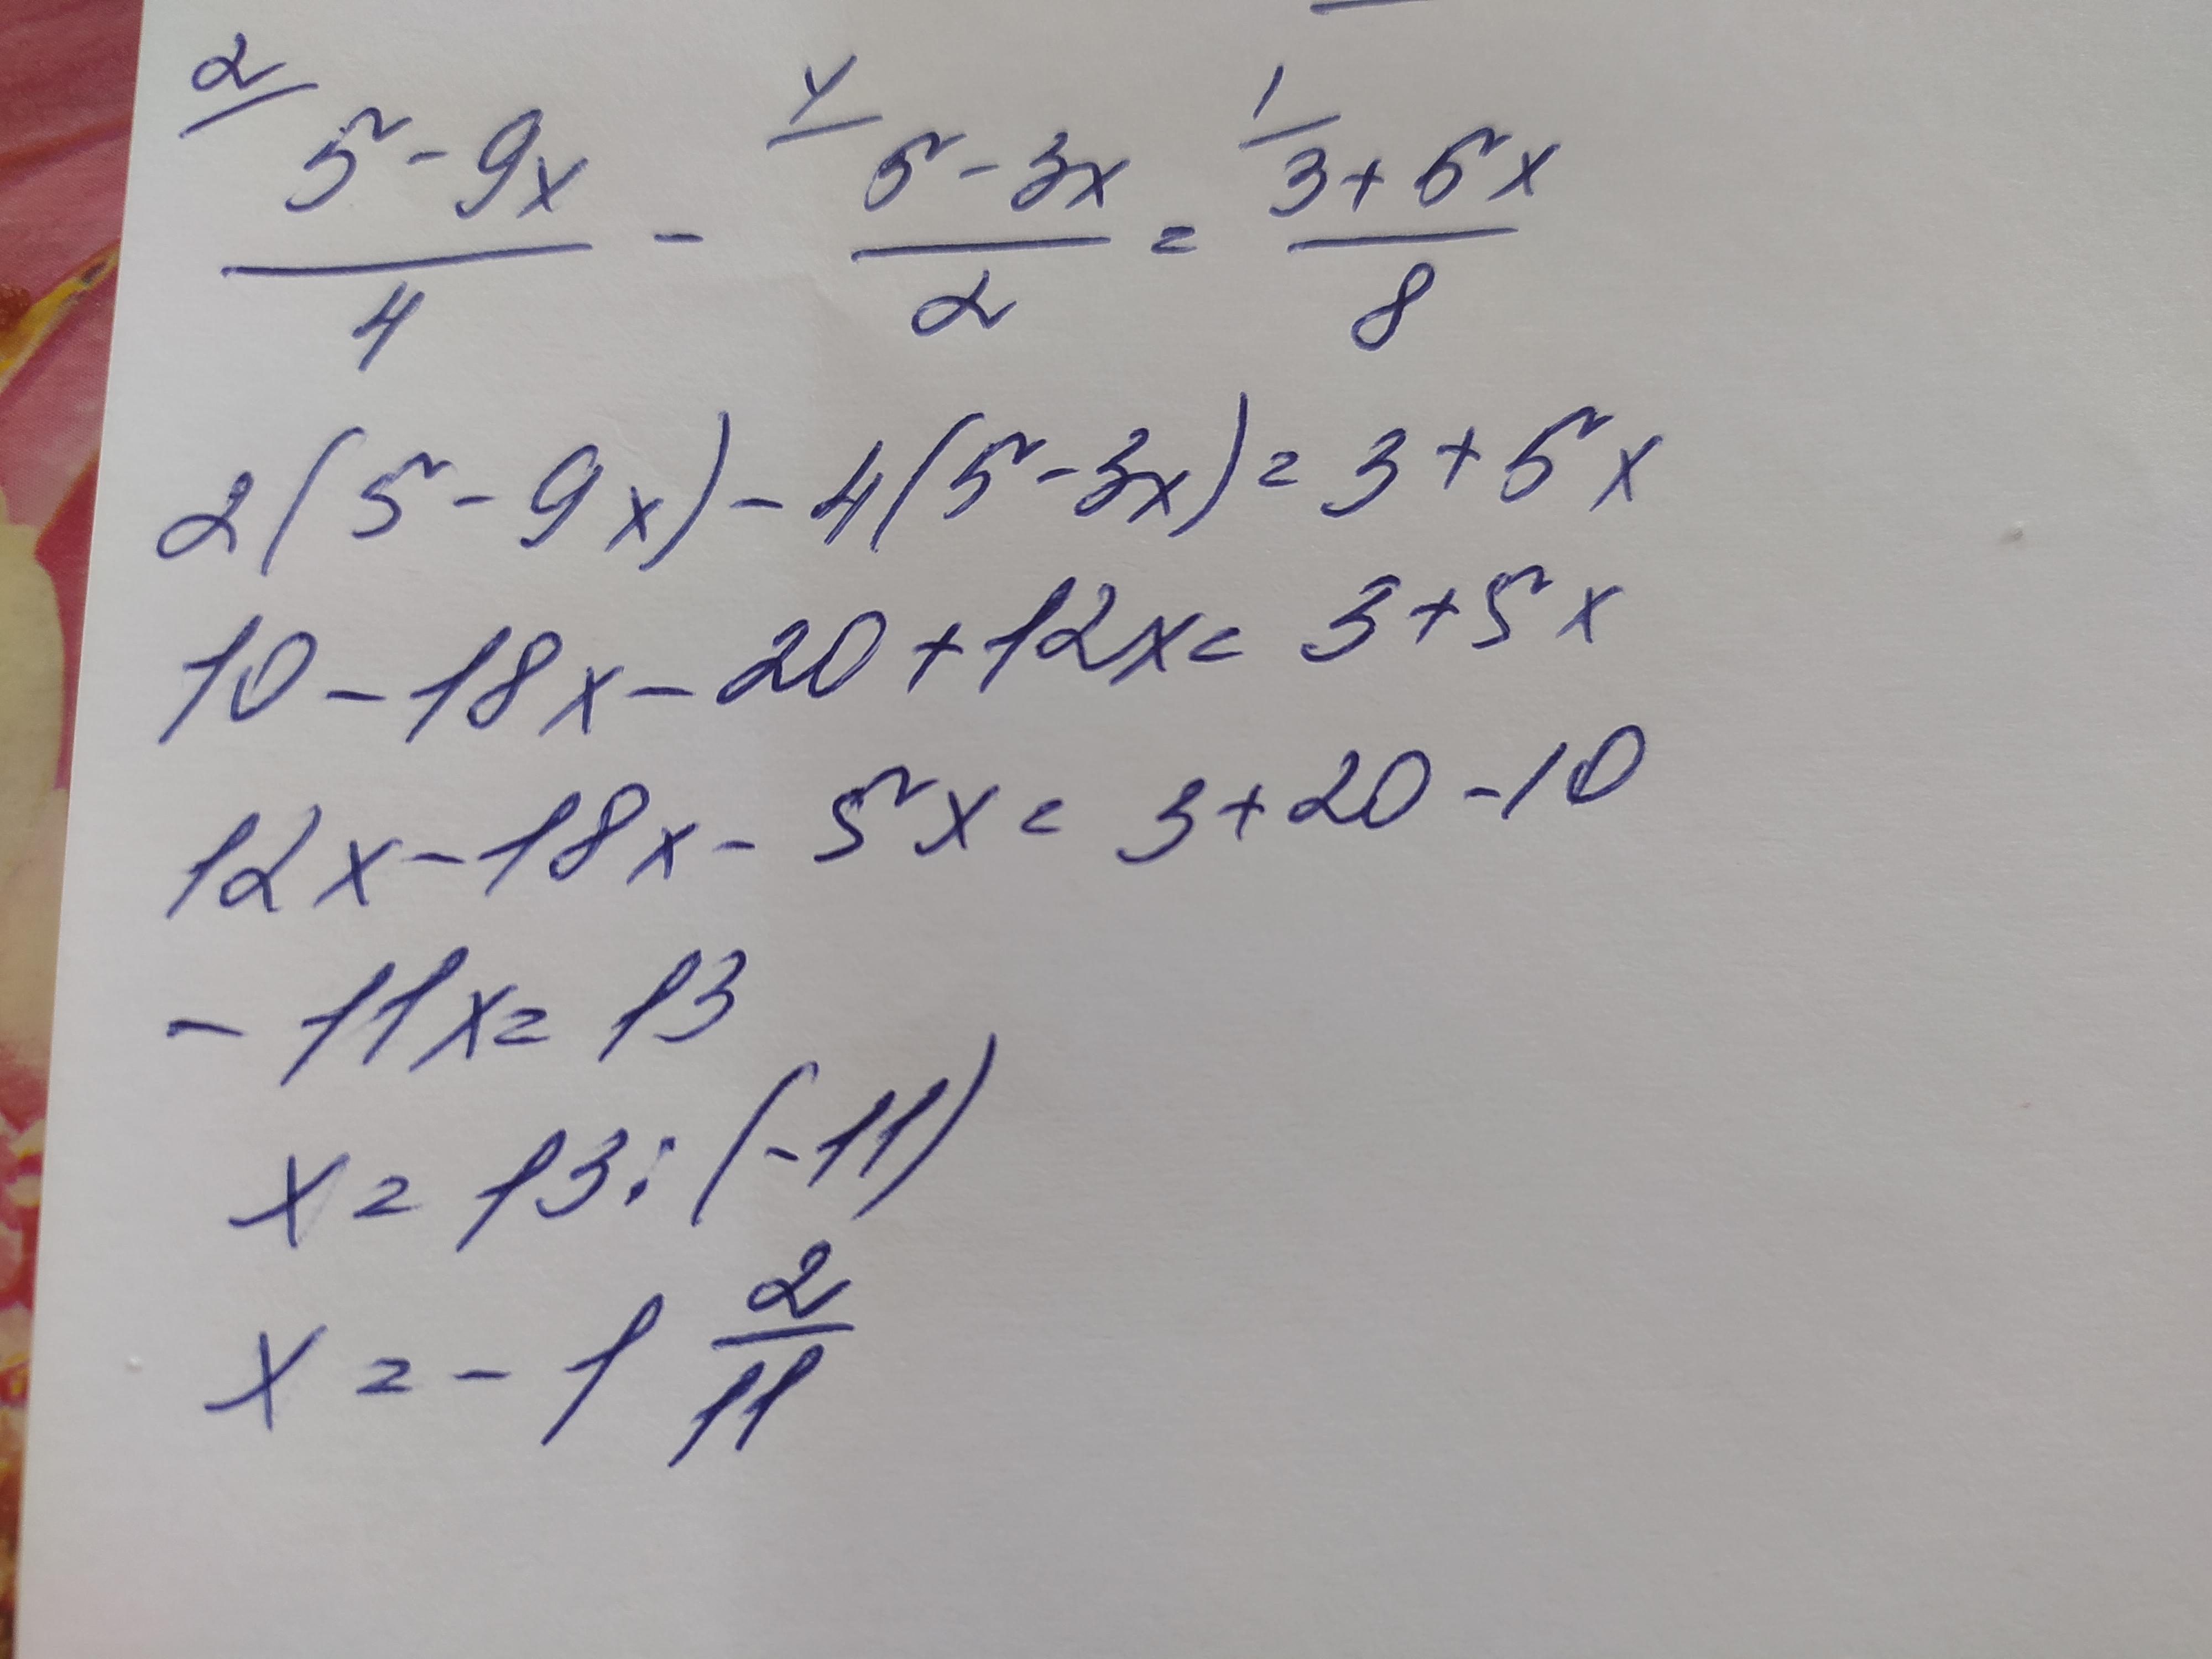 2/ 5-9x/4 - 4/ 5-3x/2 = 1/ 3+5x/8
2(5-9x)-4(5-3x)=3+5x
10-18x-20+12x=3+5x
12x-18x-5x=3+20-10
-11x=13
x=13:(-11)
x=-1 2/11